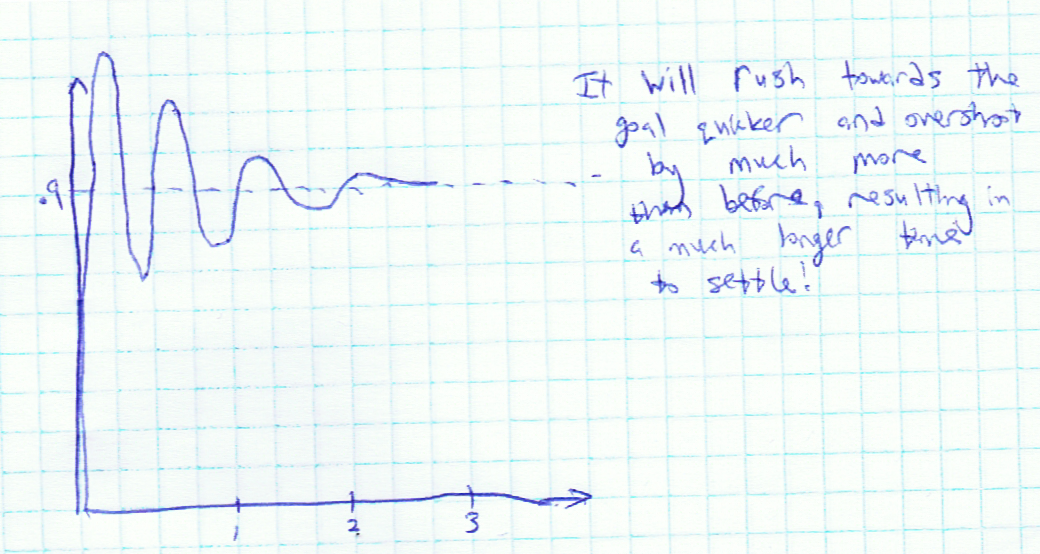 It will rush towards the
goal quicker and overshoot
by much more
than before, resulting in
a much longer time
to settle!
.9
1 2 3